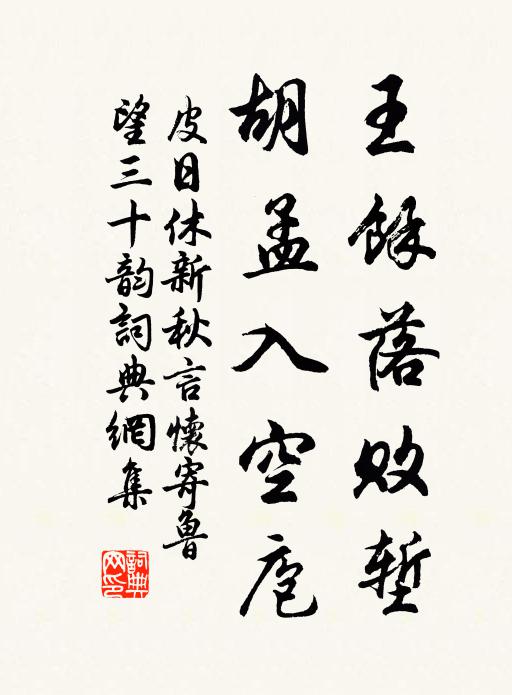 王餘落敗塹
胡孟入空庖
皮日休新秋言懷寄魯
望三十韵詞典網集
詞典
网印